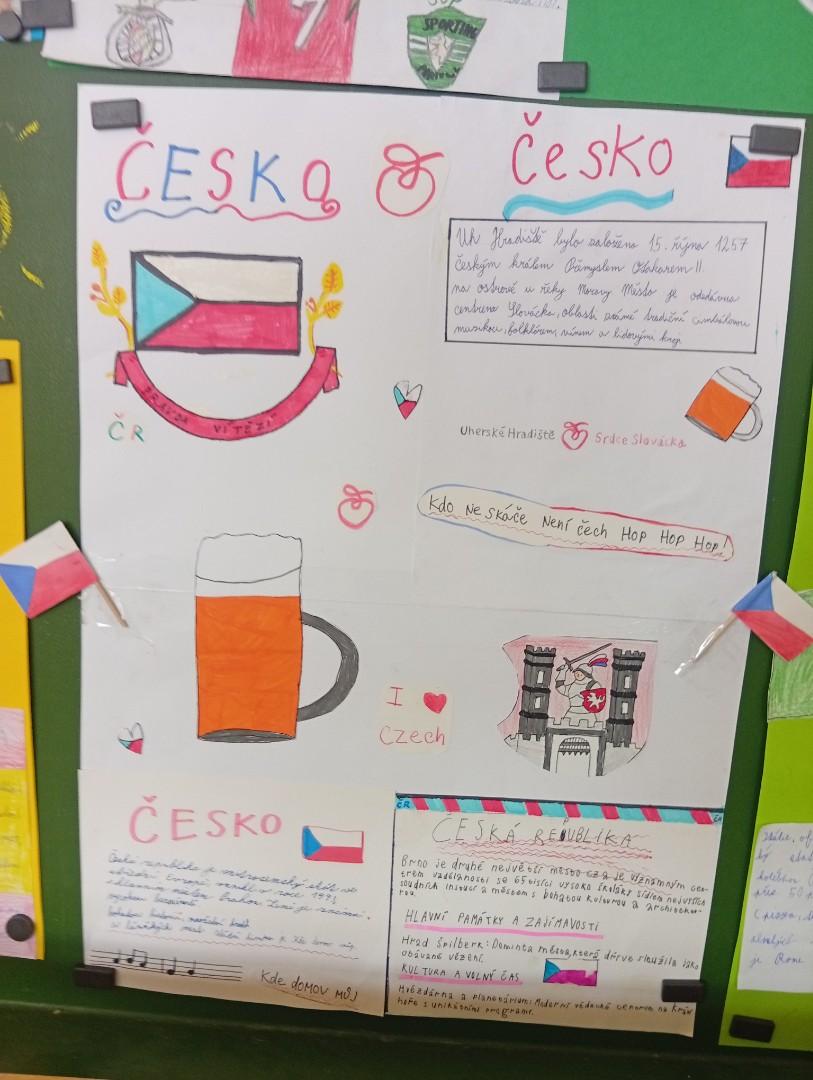 SPORTING
7
ČESKO
Česko
Uh Hradiště bylo založeno 15. října 1257
českým králem Přemyslem Otakarem II.
na ostrově u řeky Moravy Město je odedávna
centrem Slovácka, oblasti známé tradiční cimbálovou
muzikou, folklórem, vínem a lidovými kroji
PRAVDA VÍTĚZÍ
ČR
Uherské Hradiště Srdce Slovácka
Kdo Ne Skáče Není čech Hop Hop Hop!
I
Czech
ČESKO
Česká republika je vnitrozemský stát ve
střední Evropě, vznikl v roce 1993
s hlavním městem Prahou.
Kde DOMOV MŮJ
ČR
ČESKÁ REPUBLIKA
Brno je druhé největší město cz a je významným cen-
trem vzdělanosti se 65 tisíci vysoko školáky sídlem nejvyšších
soudních institucí a městem s bohatou kulturou a architektu-
rou
HLAVNÍ PAMÁTKY A ZAJÍMAVOSTI
Hrad Špilberk: Dominta města, která dříve sloužila jako
obávané vězení.
KULTURA A VOLNÝ ČAS
Hvězdárna a planetárium: Moderní vědecké centrum na Kraví
hoře s unikátními programy.